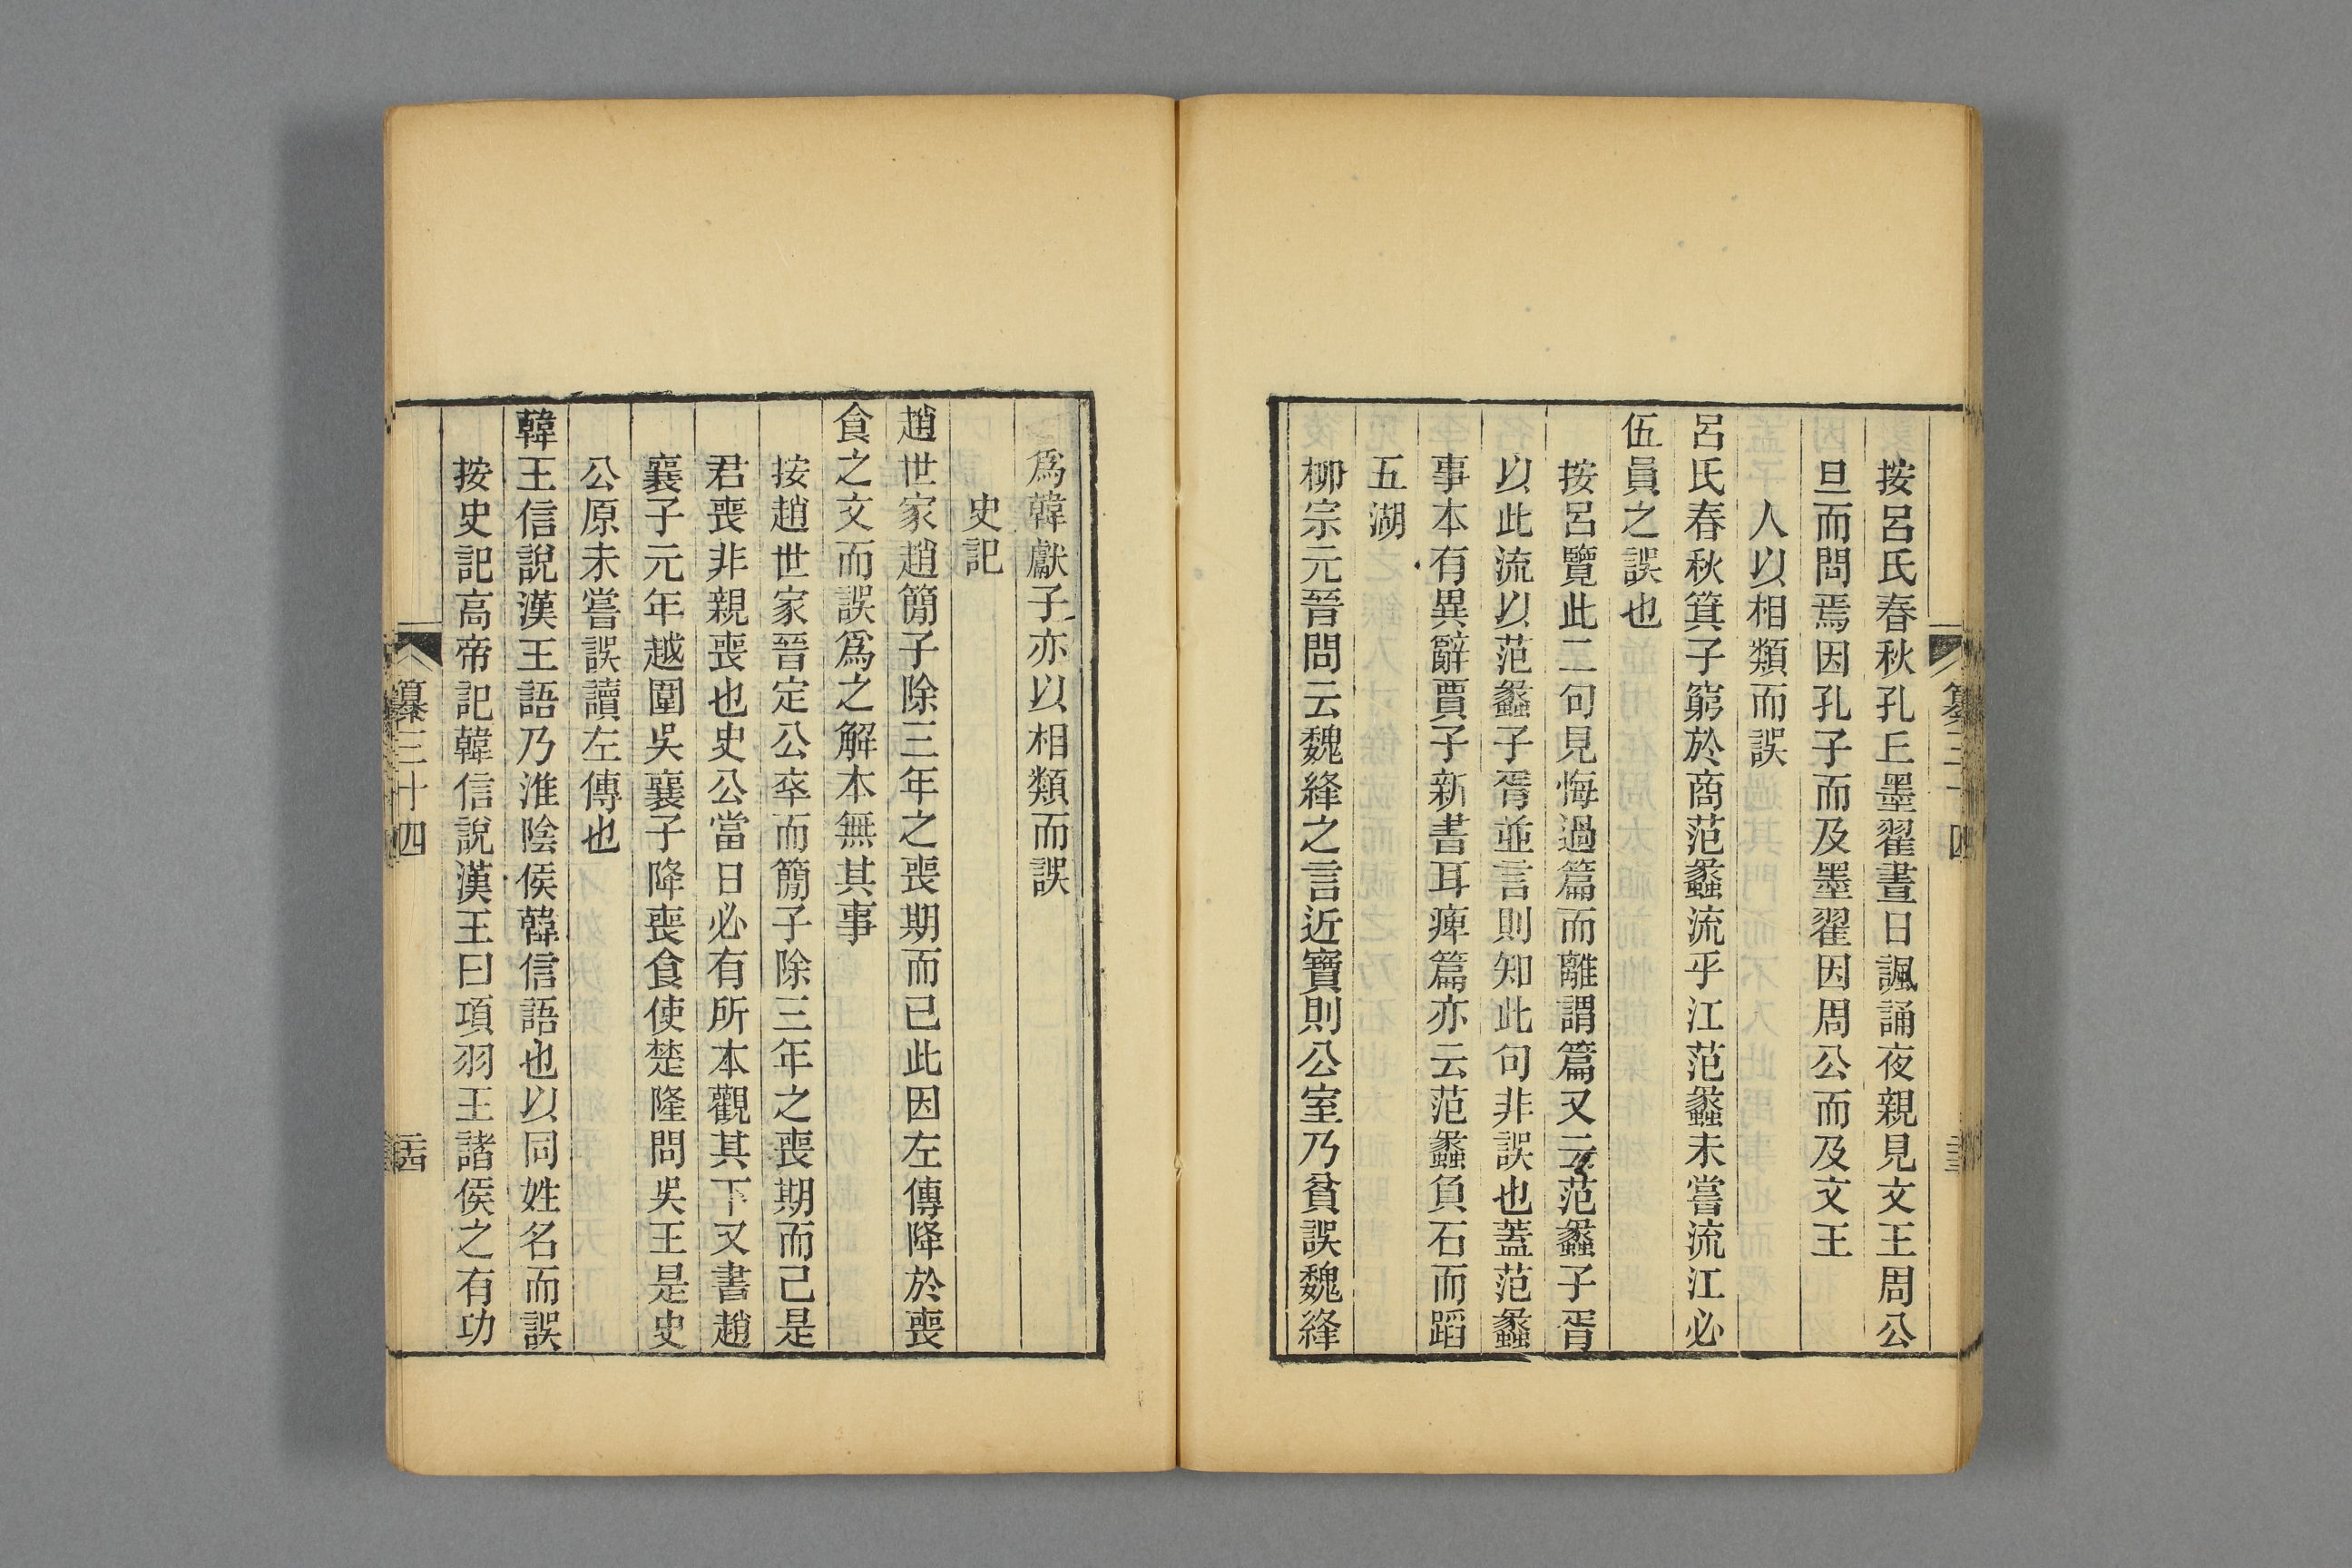 按呂氏春秋孔𠀉墨翟晝日諷誦夜親見文王周公
旦而問焉因孔子而及墨翟因周公而及文王
人以相類而誤
呂氏春秋箕子窮於商范蠡流乎江范蠡未嘗流江必
伍員之誤也
按呂覽此二句見悔過篇而離謂篇又云范蠡子胥
以此流以范蠡子胥並言則知此句非誤也蓋范蠡
事本有異辭賈子新書耳痺篇亦云范蠡負石而蹈
五湖
柳宗元晉問云魏絳之言近寶則公室乃貧誤魏絳
爲韓獻子亦以相類而誤
史記
趙世家趙簡子除三年之喪期而已此因左傳降於喪
食之文而誤爲之解本無其事
按趙世家晉定公卒而簡子除三年之喪期而己是
君喪非親喪也史公當日必有所本觀其下又書趙
襄子元年越圍吳襄子降喪食使楚隆問吳王是史
公原未嘗誤讀左傳也
韓王信說漢王語乃淮陰侯韓信語也以同姓名而誤
按史記高帝記韓信說漢王曰項羽王諸侯之有功
纂三十四